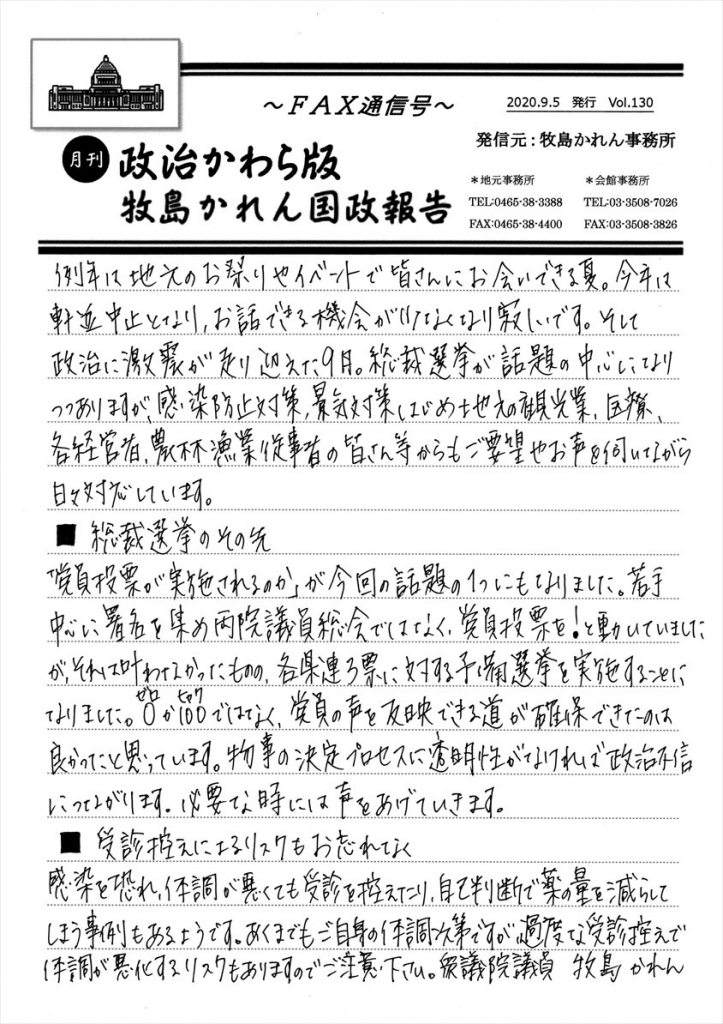 ～FAX通信号～
2020.9.5 発行 Vol.130
発信元：牧島かれん事務所
月刊 政治かわら版
牧島かれん国政報告
＊地元事務所 ＊会館事務所
TEL:0465-38-3388 TEL:03-3508-7026
FAX:0465-38-4400 FAX:03-3508-3826
例年は地元のお祭りやイベントで皆さんにお会いできる夏。今年は
軒並中止となり、お話できる機会が少なくなり寂しいです。そして
政治に激震が走り迎えた9月。総裁選挙が話題の中心になり
つつありますが、感染防止対策、景気対策はじめ地元の観光業、医療、
各経営者、農林漁業従事者の皆さん等からもご要望やお声を伺いながら
日々対応しています。
■ 総裁選挙のその先
「党員投票が実施されるのか」が今回の話題の1つにもなりました。若手
中心に署名を集め両院議員総会ではなく、党員投票を！と動いていました
が、それは叶わなかったものの、各県連3票に対する予備選挙を実施することに
なりました。0か100ではなく、党員の声を反映できる道が確保できたのは
ゼロ ヒャク
良かったと思っています。物事の決定プロセスに透明性がなければ政治不信
につながります。必要な時には声をあげていきます。
■ 受診控えによるリスクもお忘れなく
感染を恐れ、体調が悪くても受診を控えたり、自己判断で薬の量を減らして
しまう事例もあるようです。あくまでもご自身の体調次第ですが、過度な受診控えで
体調が悪化するリスクもありますのでご注意下さい。衆議院議員 牧島かれん